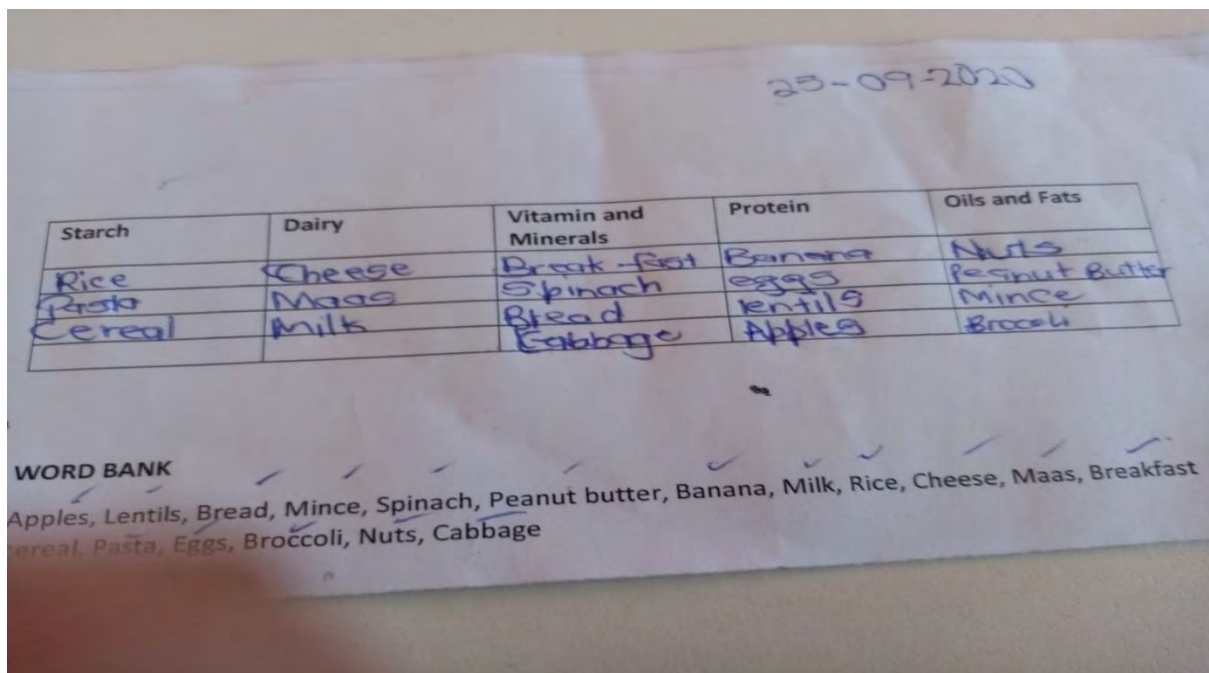 25-09-2020
Starch Dairy Vitamin and Minerals Protein Oils and Fats
Rice Cheese Break-fast Banana Nuts
Pasta Maas Spinach eggs Peanut Butter
Cereal Milk Bread lentils Mince
Cabbage Apples Brocoli
WORD BANK
Apples, Lentils, Bread, Mince, Spinach, Peanut butter, Banana, Milk, Rice, Cheese, Maas, Breakfast
cereal, Pasta, Eggs, Broccoli, Nuts, Cabbage